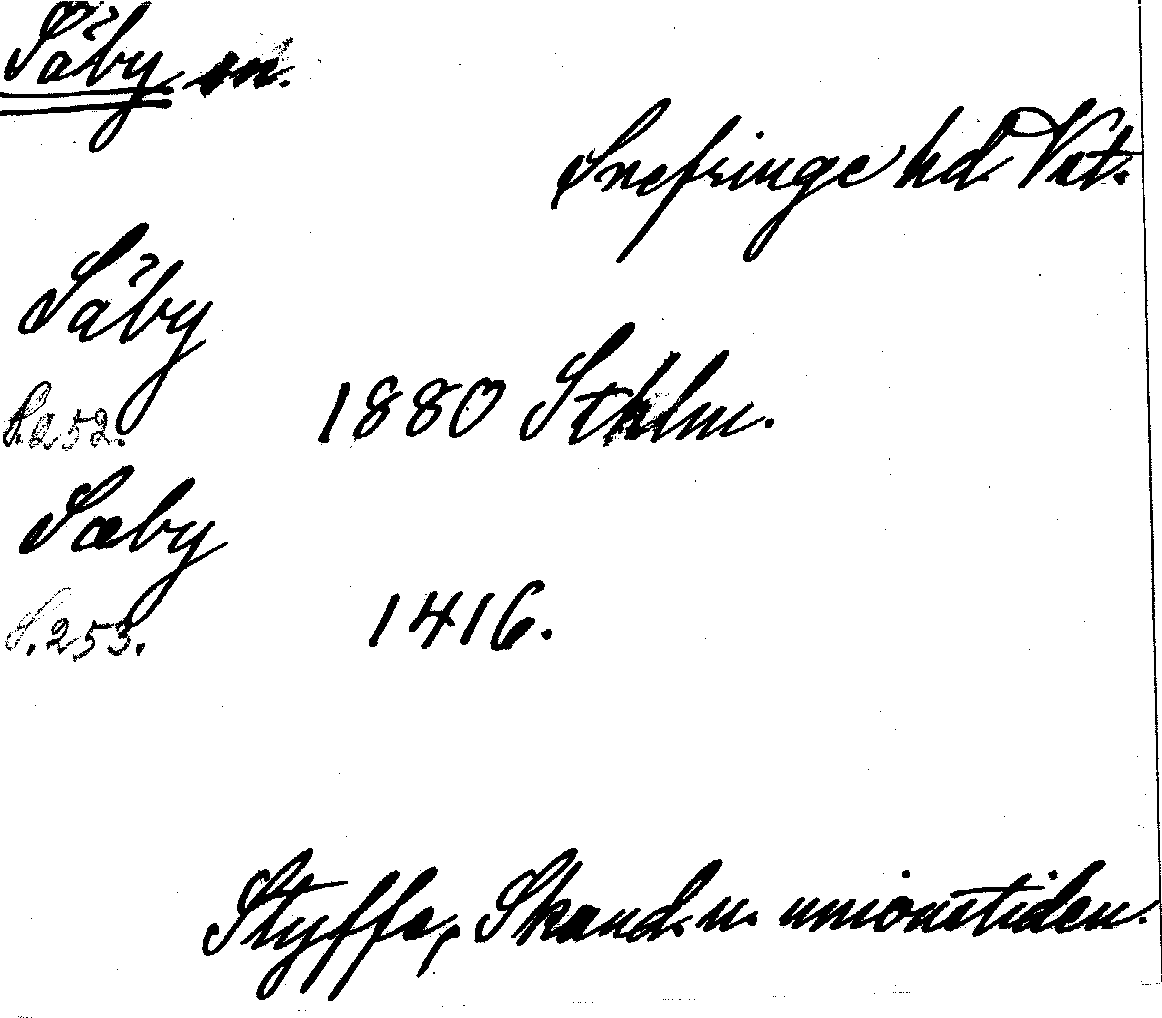 Säby sn.
Snefringe hd. Vstm.
Säby
S. 252.
1880 Sthlm.
Sæby
S. 253.
1416.
Styffe, Skand. u. unionstiden.